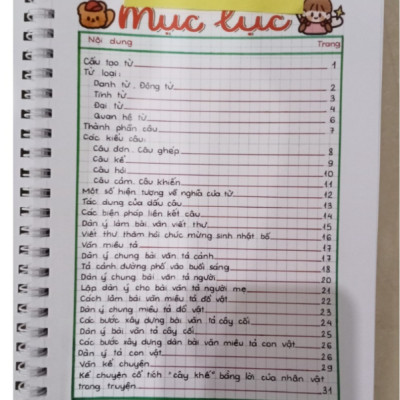 Mục lục
Nội dung Trang
Cấu tạo từ 1
Từ loại:
Danh từ. Động từ 2
Tính từ 3
Đại từ 4
Quan hệ từ 6
Thành phần câu 7
Các kiểu câu:
Câu đơn. Câu ghép 8
Câu kể 9
Câu hỏi 10
Câu cảm. Câu khiến 11
Một số hiện tượng về nghĩa của từ 12
Tác dụng của dấu câu 13
Các biện pháp liên kết câu 14
Dàn ý làm bài văn viết thư 15
Viết thư thăm hỏi chúc mừng sinh nhật bố 16
Văn miêu tả 17
Dàn ý chung bài văn tả cảnh 17
Tả cảnh đường phố vào buổi sáng 18
Dàn ý chung bài văn tả người 20
Lập dàn ý cho bài văn tả người mẹ 21
Cách làm bài văn miêu tả đồ vật 22
Dàn ý chung miêu tả đồ vật 23
Các bước xây dựng bài văn tả cây cối 24
Dàn ý bài văn tả cây cối 25
Các bước xây dựng dàn bài văn miêu tả con vật 26
Dàn ý tả con vật 26
Văn kể chuyện 29
Kể chuyện cổ tích "cây khế" bằng lời của nhân vật
trong truyện 31